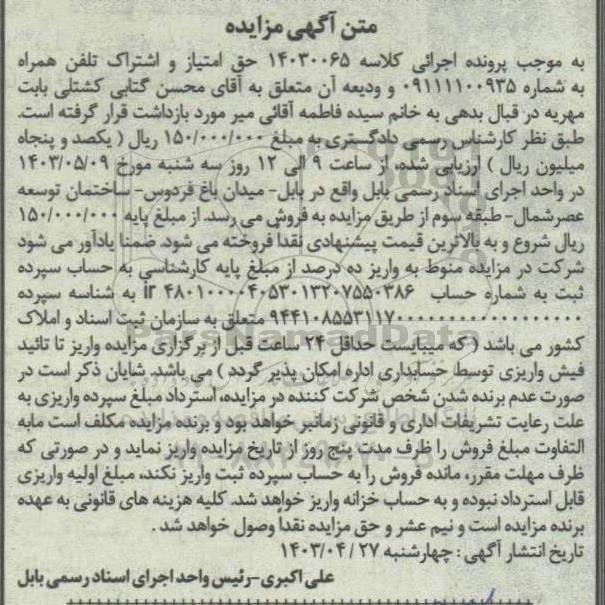 متن آگهی مزایده
به موجب پرونده اجرائی کلاسه ۱۴۰۳۰۰۶۵ حق امتیاز و اشتراک تلفن همراه
به شماره ۰۹۱۱۱۱۰۰۹۳۵ و ودیعه آن متعلق به آقای محسن گتابی کشتلی بابت
مهریه در قبال بدهی به خانم سیده فاطمه آقائی میر مورد بازداشت قرار گرفته است.
طبق نظر کارشناس رسمی دادگستری به مبلغ ۱۵۰/۰۰۰/۰۰۰ ریال ( یکصد و پنجاه
میلیون ریال ) ارزیابی شده، از ساعت ۹ الی ۱۲ روز سه شنبه مورخ ۱۴۰۳/۰۵/۰۹
در واحد اجرای اسناد رسمی بابل واقع در بابل- میدان باغ فردوس- ساختمان توسعه
عصرشمال- طبقه سوم از طریق مزایده به فروش می رسد. از مبلغ پایه ۱۵۰/۰۰۰/۰۰۰
ریال شروع و به بالاترین قیمت پیشنهادی نقداً فروخته می شود. ضمنا یادآور می شود
شرکت در مزایده منوط به واریز ده درصد از مبلغ پایه کارشناسی به حساب سپرده
ثبت به شماره حساب ir ۴۸۰۱۰۰۰۰۴۰۵۳۰۱۳۲۰۷۵۵۰۳۸۶ به شناسه سپرده
متعلق به سازمان ثبت اسناد و املاک
کشور می باشد ( که میبایست حداقل ۲۴ ساعت قبل از برگزاری مزایده واریز تا تائید
فیش واریزی توسط حسابداری اداره امکان پذیر گردد ) می باشد. شایان ذکر است در
صورت عدم برنده شدن شخص شرکت کننده در مزایده، استرداد مبلغ سپرده واریزی به
علت رعایت تشریفات اداری و قانونی زمانبر خواهد بود و برنده مزایده مکلف است مابه
التفاوت مبلغ فروش را ظرف مدت پنج روز از تاریخ مزایده واریز نماید و در صورتی که
ظرف مهلت مقرر، مانده فروش را به حساب سپرده ثبت واریز نکند، مبلغ اولیه واریزی
قابل استرداد نبوده و به حساب خزانه واریز خواهد شد. کلیه هزینه های قانونی به عهده
برنده مزایده است و نیم عشر و حق مزایده نقداً وصول خواهد شد .
تاریخ انتشار آگهی : چهارشنبه ۲۷ / ۱۴۰۳/۰۴
علی اکبری-رئیس واحد اجرای اسناد رسمی بابل
ParsNamadData